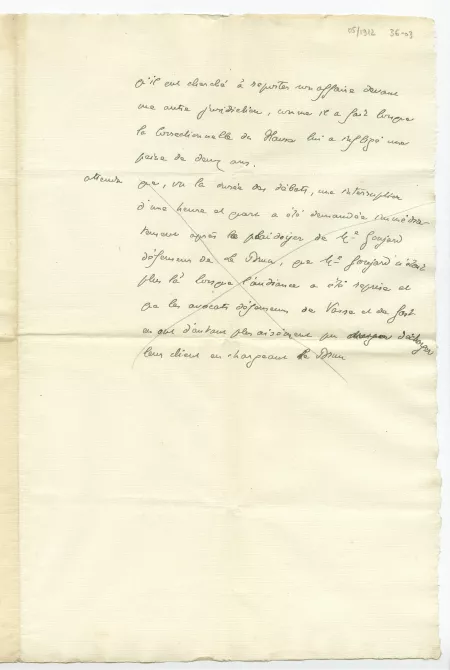 05/1912 36-03
qu'il eut cherché à reporter son affaire devant
une autre juridiction, comme il a fait lorsque
la Correctionnelle du Havre lui a infligé une
peine de deux ans.
attendu que, vu la durée des débats, une interruption
d'une heure et quart a été demandée immédia-
tement après le plaidoyer de Me Goujard
défenseur de Le Brun, que Me Goujard n'était
plus là lorsque l'audience a été reprise et
que les avocats défenseurs de Vasse et de
en ont d'autant plus aisément pu
leur client en chargeant Le Brun